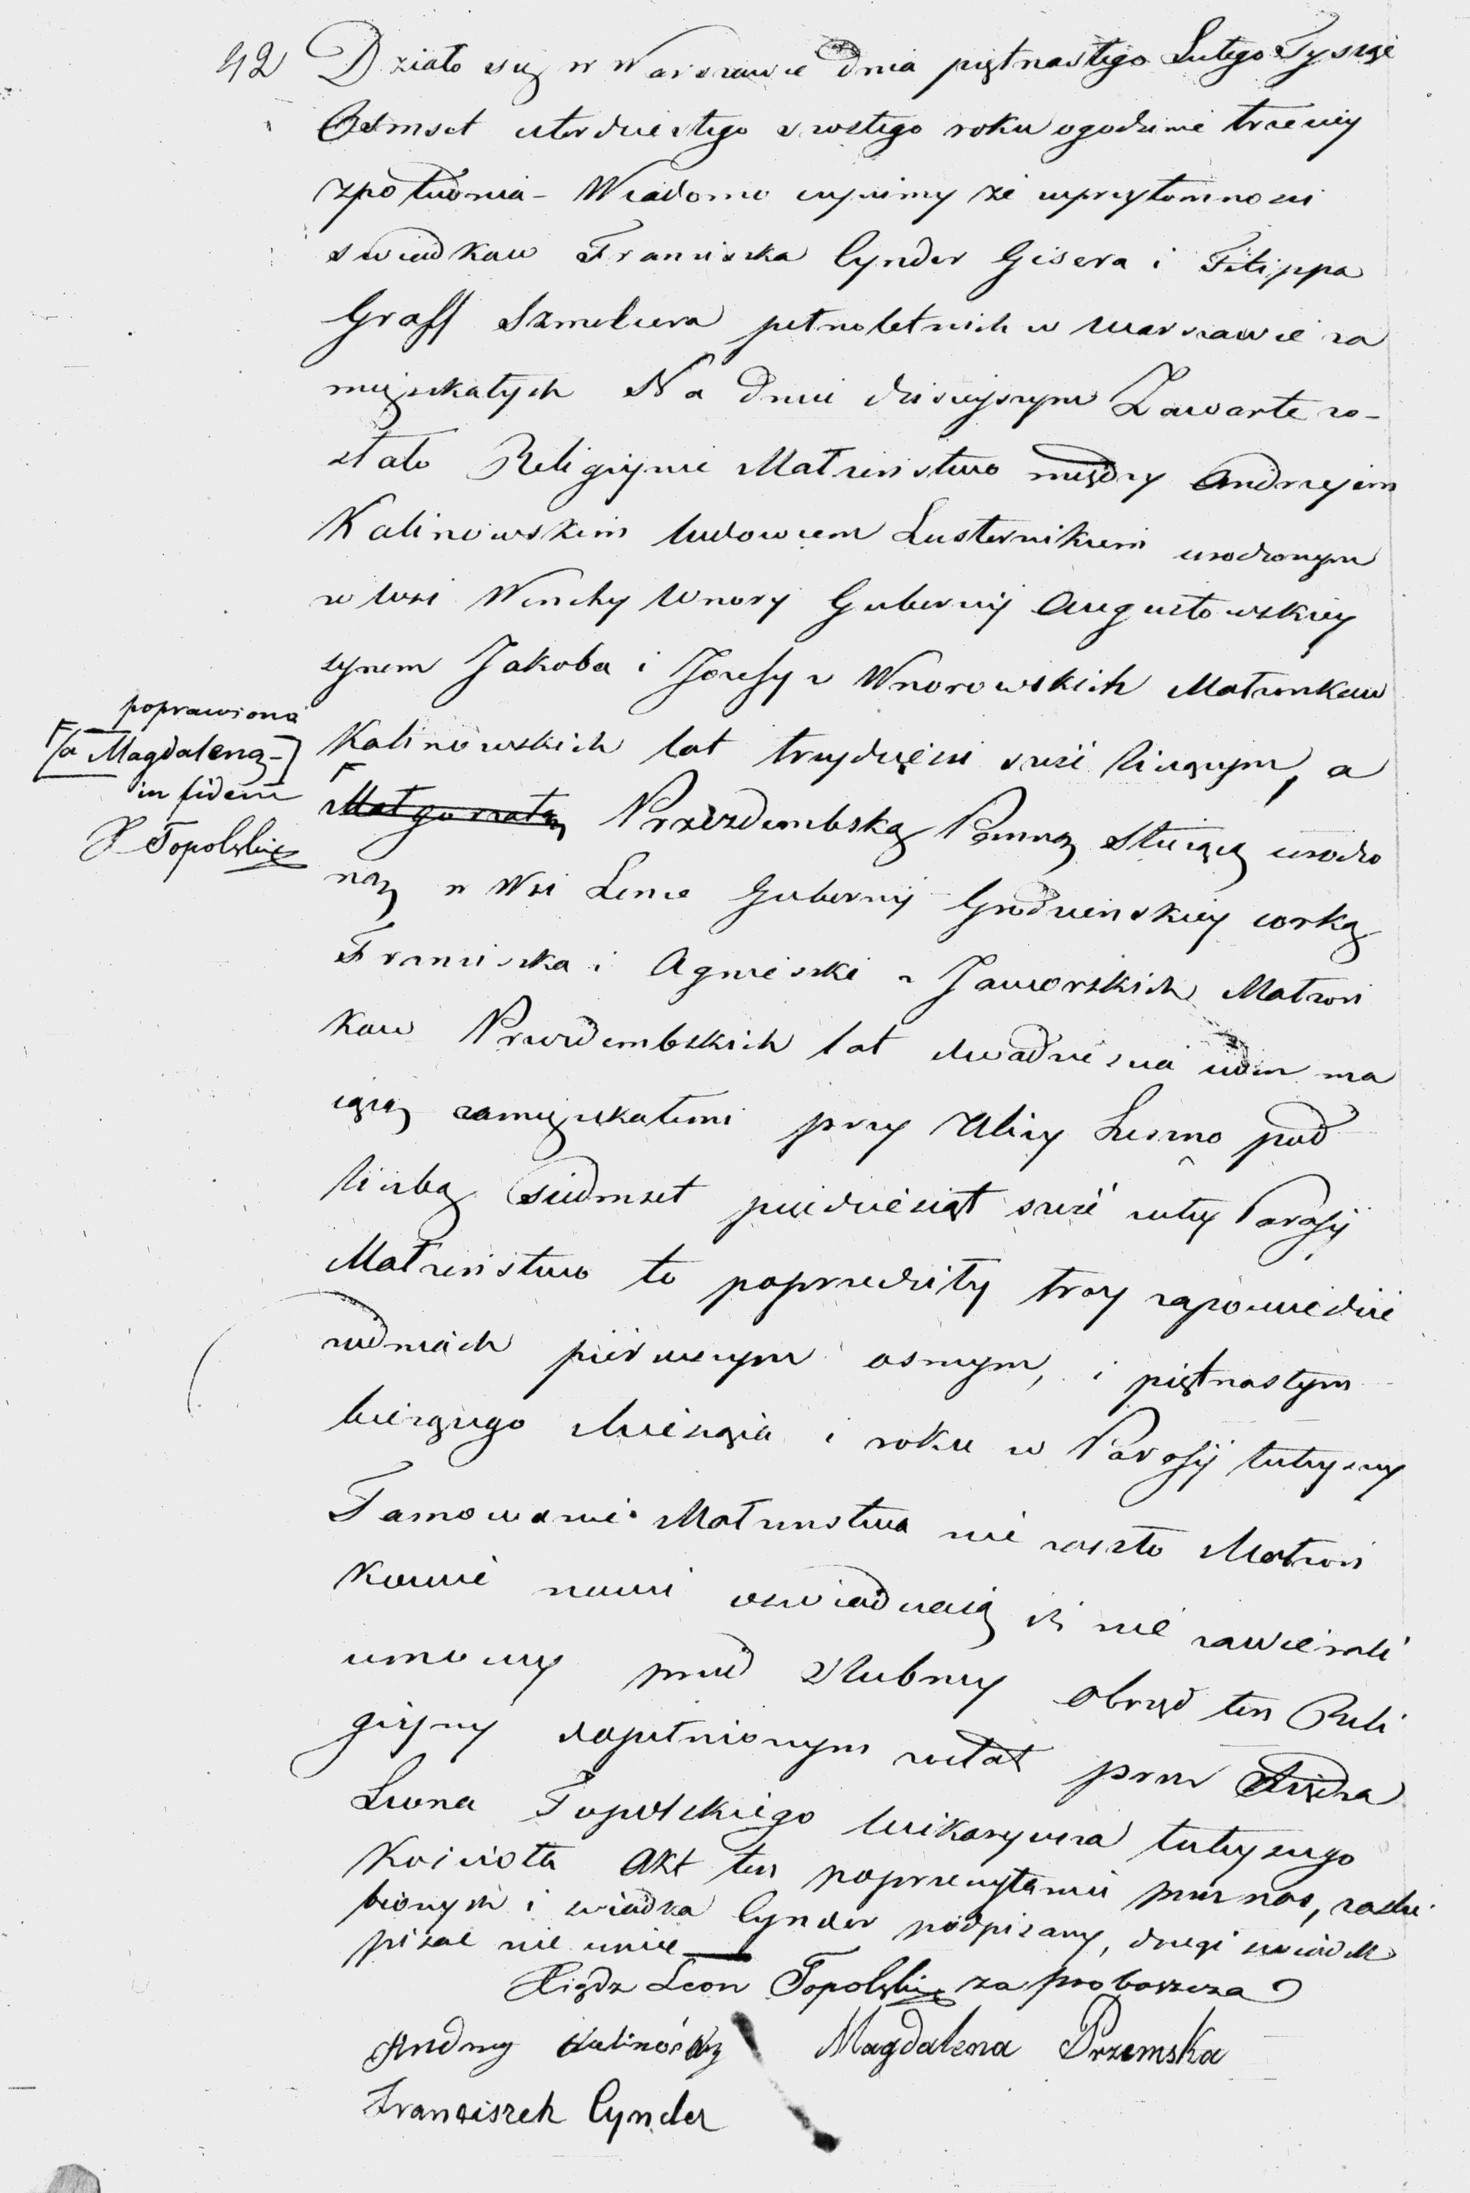 42 Działo się w Warszawie dnia piętnastego Lutego Tysiąc
Osmset czterdziestego szostego roku o godzinie trzeciey
z południa - Wiadomo czynimy że w przytomnosci
swiadkow Franciszka Cynder Gisera i Filippa
Graff Szmelcera pełnoletnich w Warszawie za
mięszkałych Na dniu dzisieyszym Zawarte zo-
stało Religiyne Małżeństwo między Andrzejem
Kalinowskim wdowcem Lusternikiem urodzonym
w wsi Wnory Gubernij Augustowskiey
synem Jakoba i Jozefy z Wnorowskich Małżonkow
Kalinowskich lat trzydzieści sześć liczącym, a
poprawiono
a Magdaleną
in fidem
X Topolski
Małgorzatą Przezdembską Panną Służącą urodzo
ną w Wsi Gubernij Grodzieńskiey corką
Franciszka i Agnieszki z Jaworskich Małżon
kow Przezdembskich lat dwadzieścia ieden ma
iącą zamięszkałemi przy Ulicy Leszno pod
liczbą Siedmset pięćdziesiąt sześć tutey Parafij
Małżeństwo to poprzedziły trzy zapowiedzie
w dniach pierwszym osmym, i piętnastym
bieżącego Miesiąca i roku w Parafij tuteyszey
Tamowanie Małżeństwa nie zaszło Małżon
kowie nowi oswiadczaią iż nie zawierali
umowy przed slubney Obrząd ten Reli
giyny dopełnionym został przez Xiędza
Leona Topolskiego Wikaryusza tuteyszego
Kościoła Akt ten po przeczytaniu przez nas, zaslu
bionych i swiadka Cynder podpisany, drugi swiadek
pisać nie umie
Xiądz Leon Topolski za proboszcza
Andrzy Kalinoski Magdalena Przemska
Franciszek Cynder